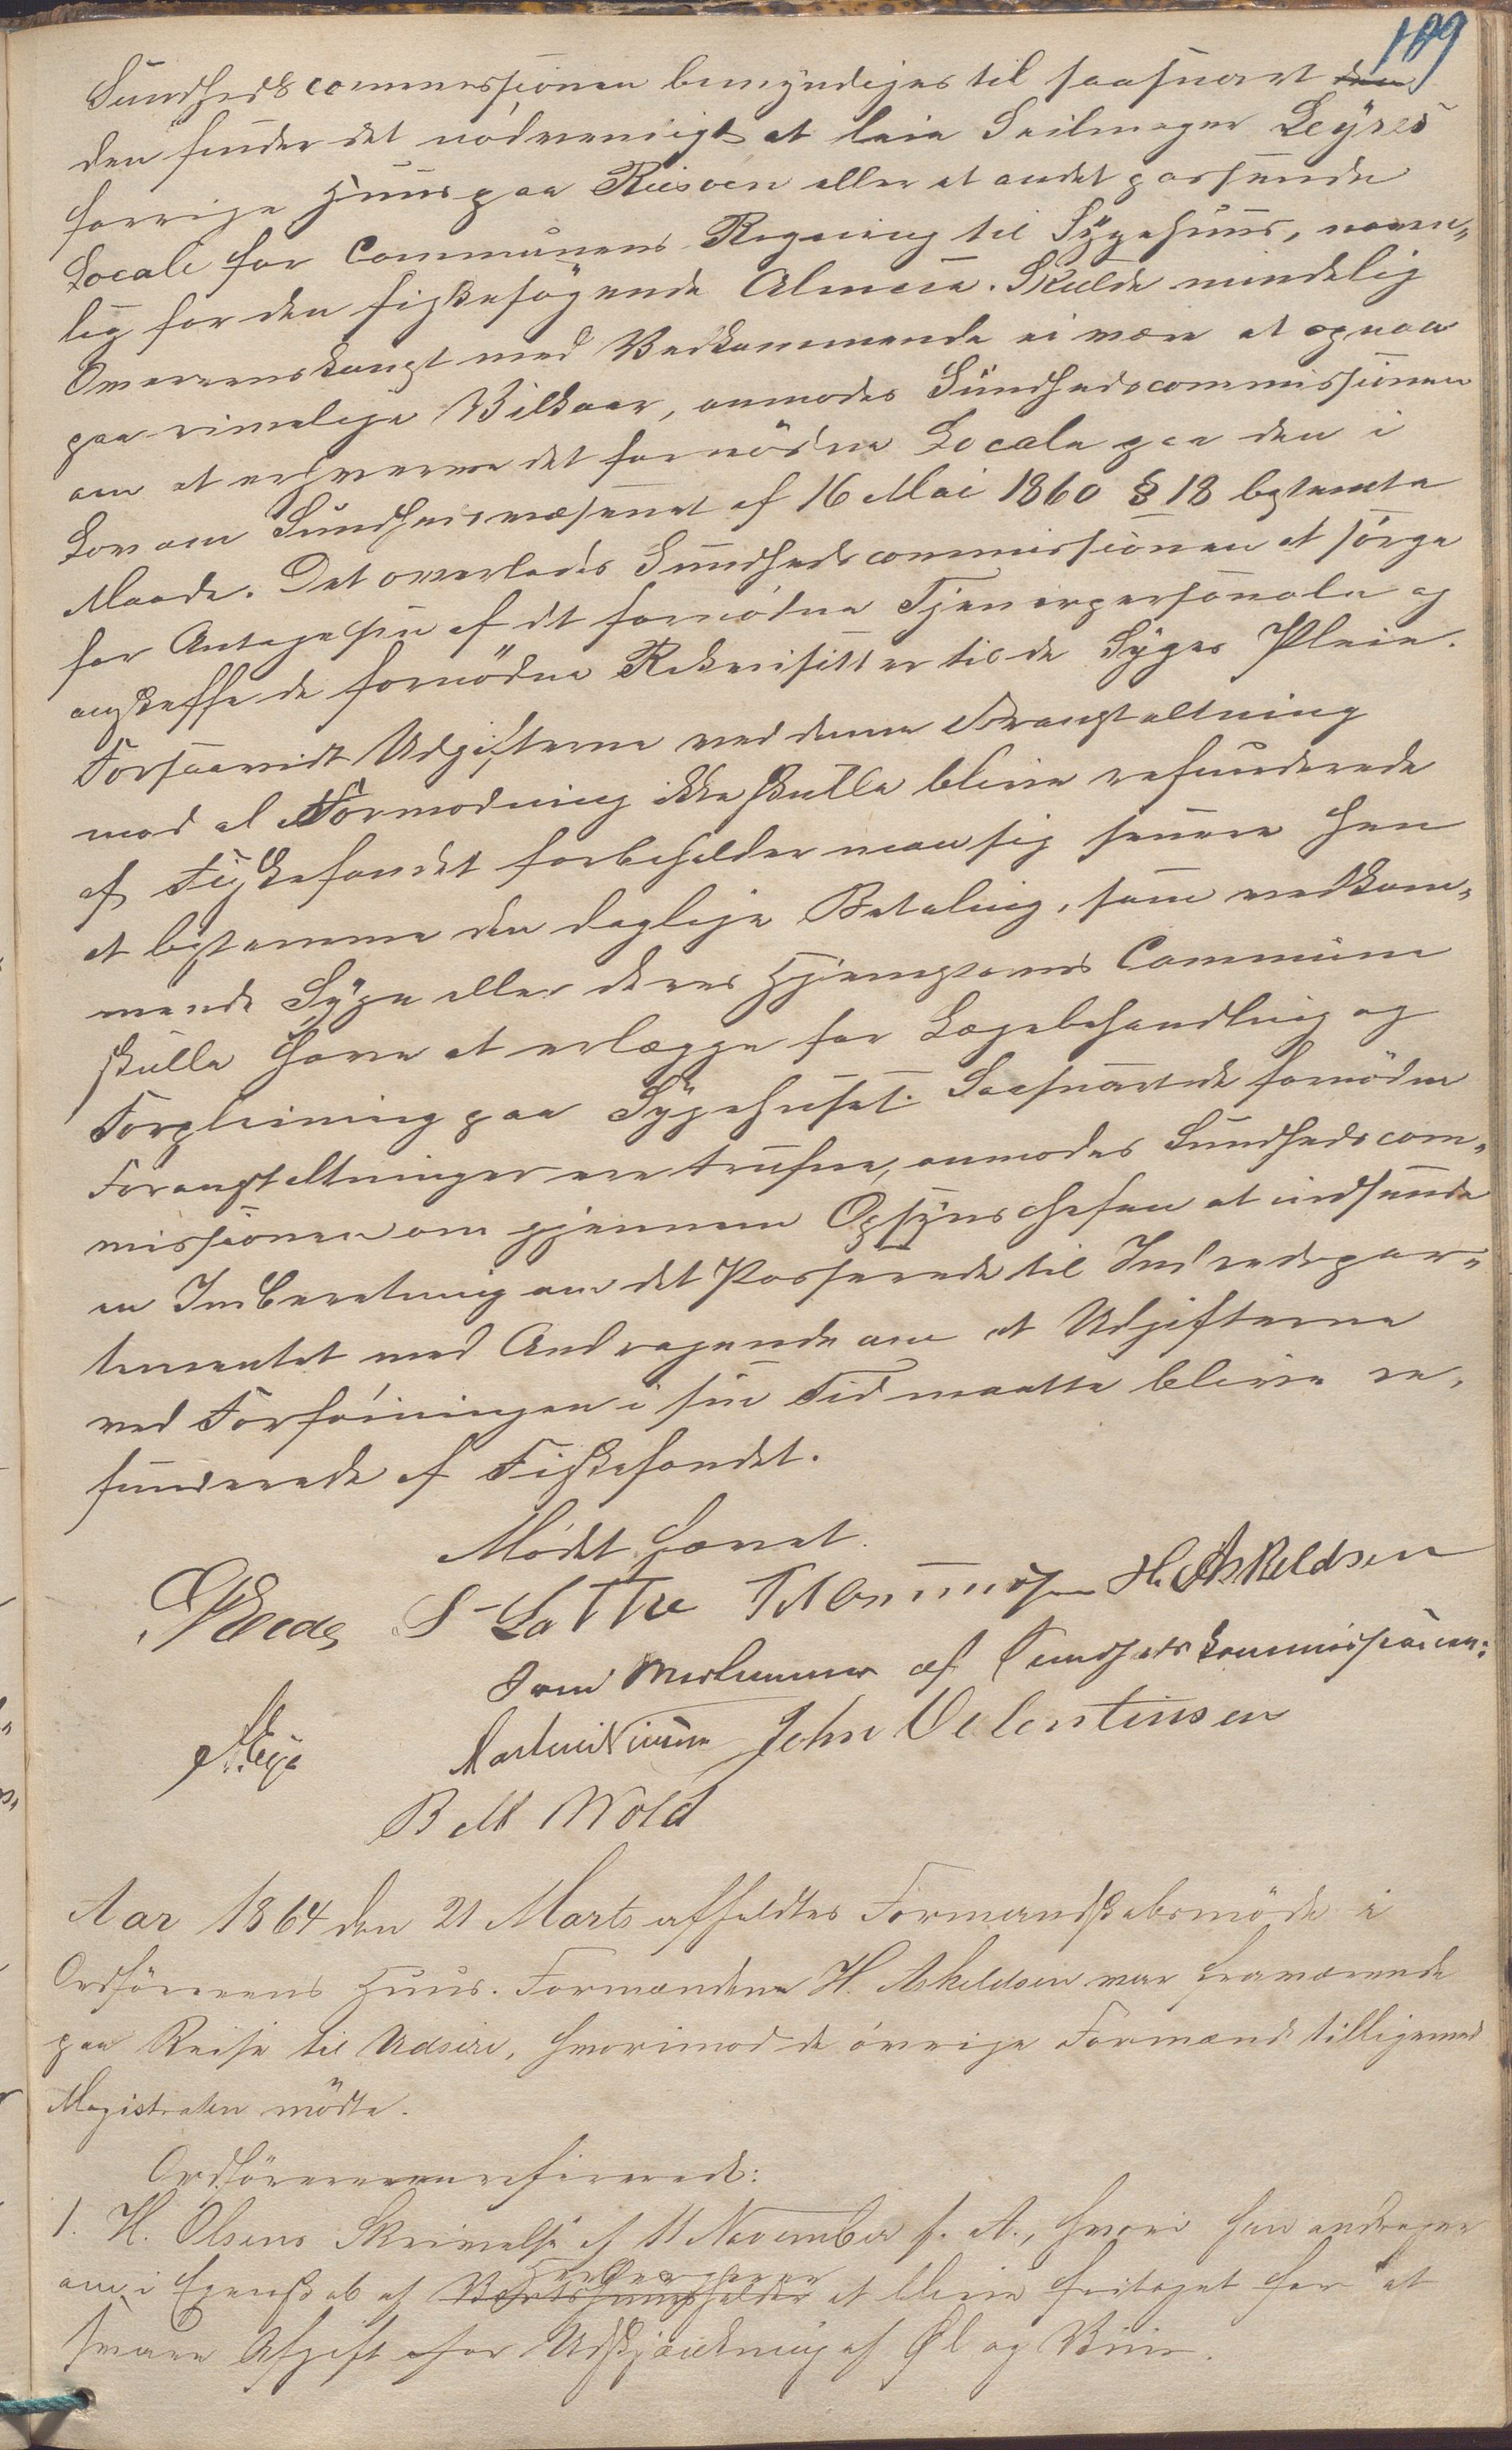 109
Sundhedscommissionen bemyndiges til saasnart den
den finder det nødvendigt at leie Seilmager Leyres
forrige Huus paa Risøen eller et andet passende
Locale for Communens Regning til Sygehuus, navn-
lig for den fiskesøgende Almue. Skulde mindelig
Overeenskomst med Vedkommende ei være at opnaa
paa rimelige Vilkaar, anmodes Sundhedscommissionen
om at erhverve det fornødne Locale paa den i
Lov om Sundhedsvæsenet af 16 Mai 1860 § 18 bestemte
Maade. Det overlades Sundhedscommissionen at sørge
for Antagelsen af det fornødne Tjenerpersonale og
anskaffe de fornødne Rekvisitter til de Syges Pleie.
Forsaavidt Udgifterne ved denne Foranstaltning
mod al Formodning ikke skulle blive refunderede
af Fiskefondet forbeholder man sig senere hen
at bestemme den daglige Betaling, som vedkom-
mende Syge eller deres Hjemstavns Commune
skulle have at erlægge for Lægebehandling og
Forpleining paa Sygehuset. Saasnart de fornødne
Foranstaltninger ere trufne, anmodes Sundhedscom-
missionen om gjennem Opsynschefen at indsende
en Indberetning om det Passerede til Indredepar-
tementet med Andragende om at Udgifterne
ved Forføiningen i sin Tid maatte blive re-
funderede af Fiskefondet.
Mødet hævet.
S. Lothe H. Askeldsen
Som Medlemmer af Sundhedskommissionen:
John Valentinsen
B M Wold
Aar 1864 den 21 Marts afholdtes Formandskabsmøde i
Ordførerens Huus. Formanden H. Askeldsen var fraværende
paa Reise til Udsire, hvorimod de øvrige Formænd tilligemed
Magistraten mødte.
Ordføreren refererede:
1. H. Olsens Skrivelse af 11 November f. A., hvori han andrager
Herbergerer
om i Egenskab af Værtshuusholder at blive fritaget for at
svare Afgift for Udskjænkning af Øl og Viin.